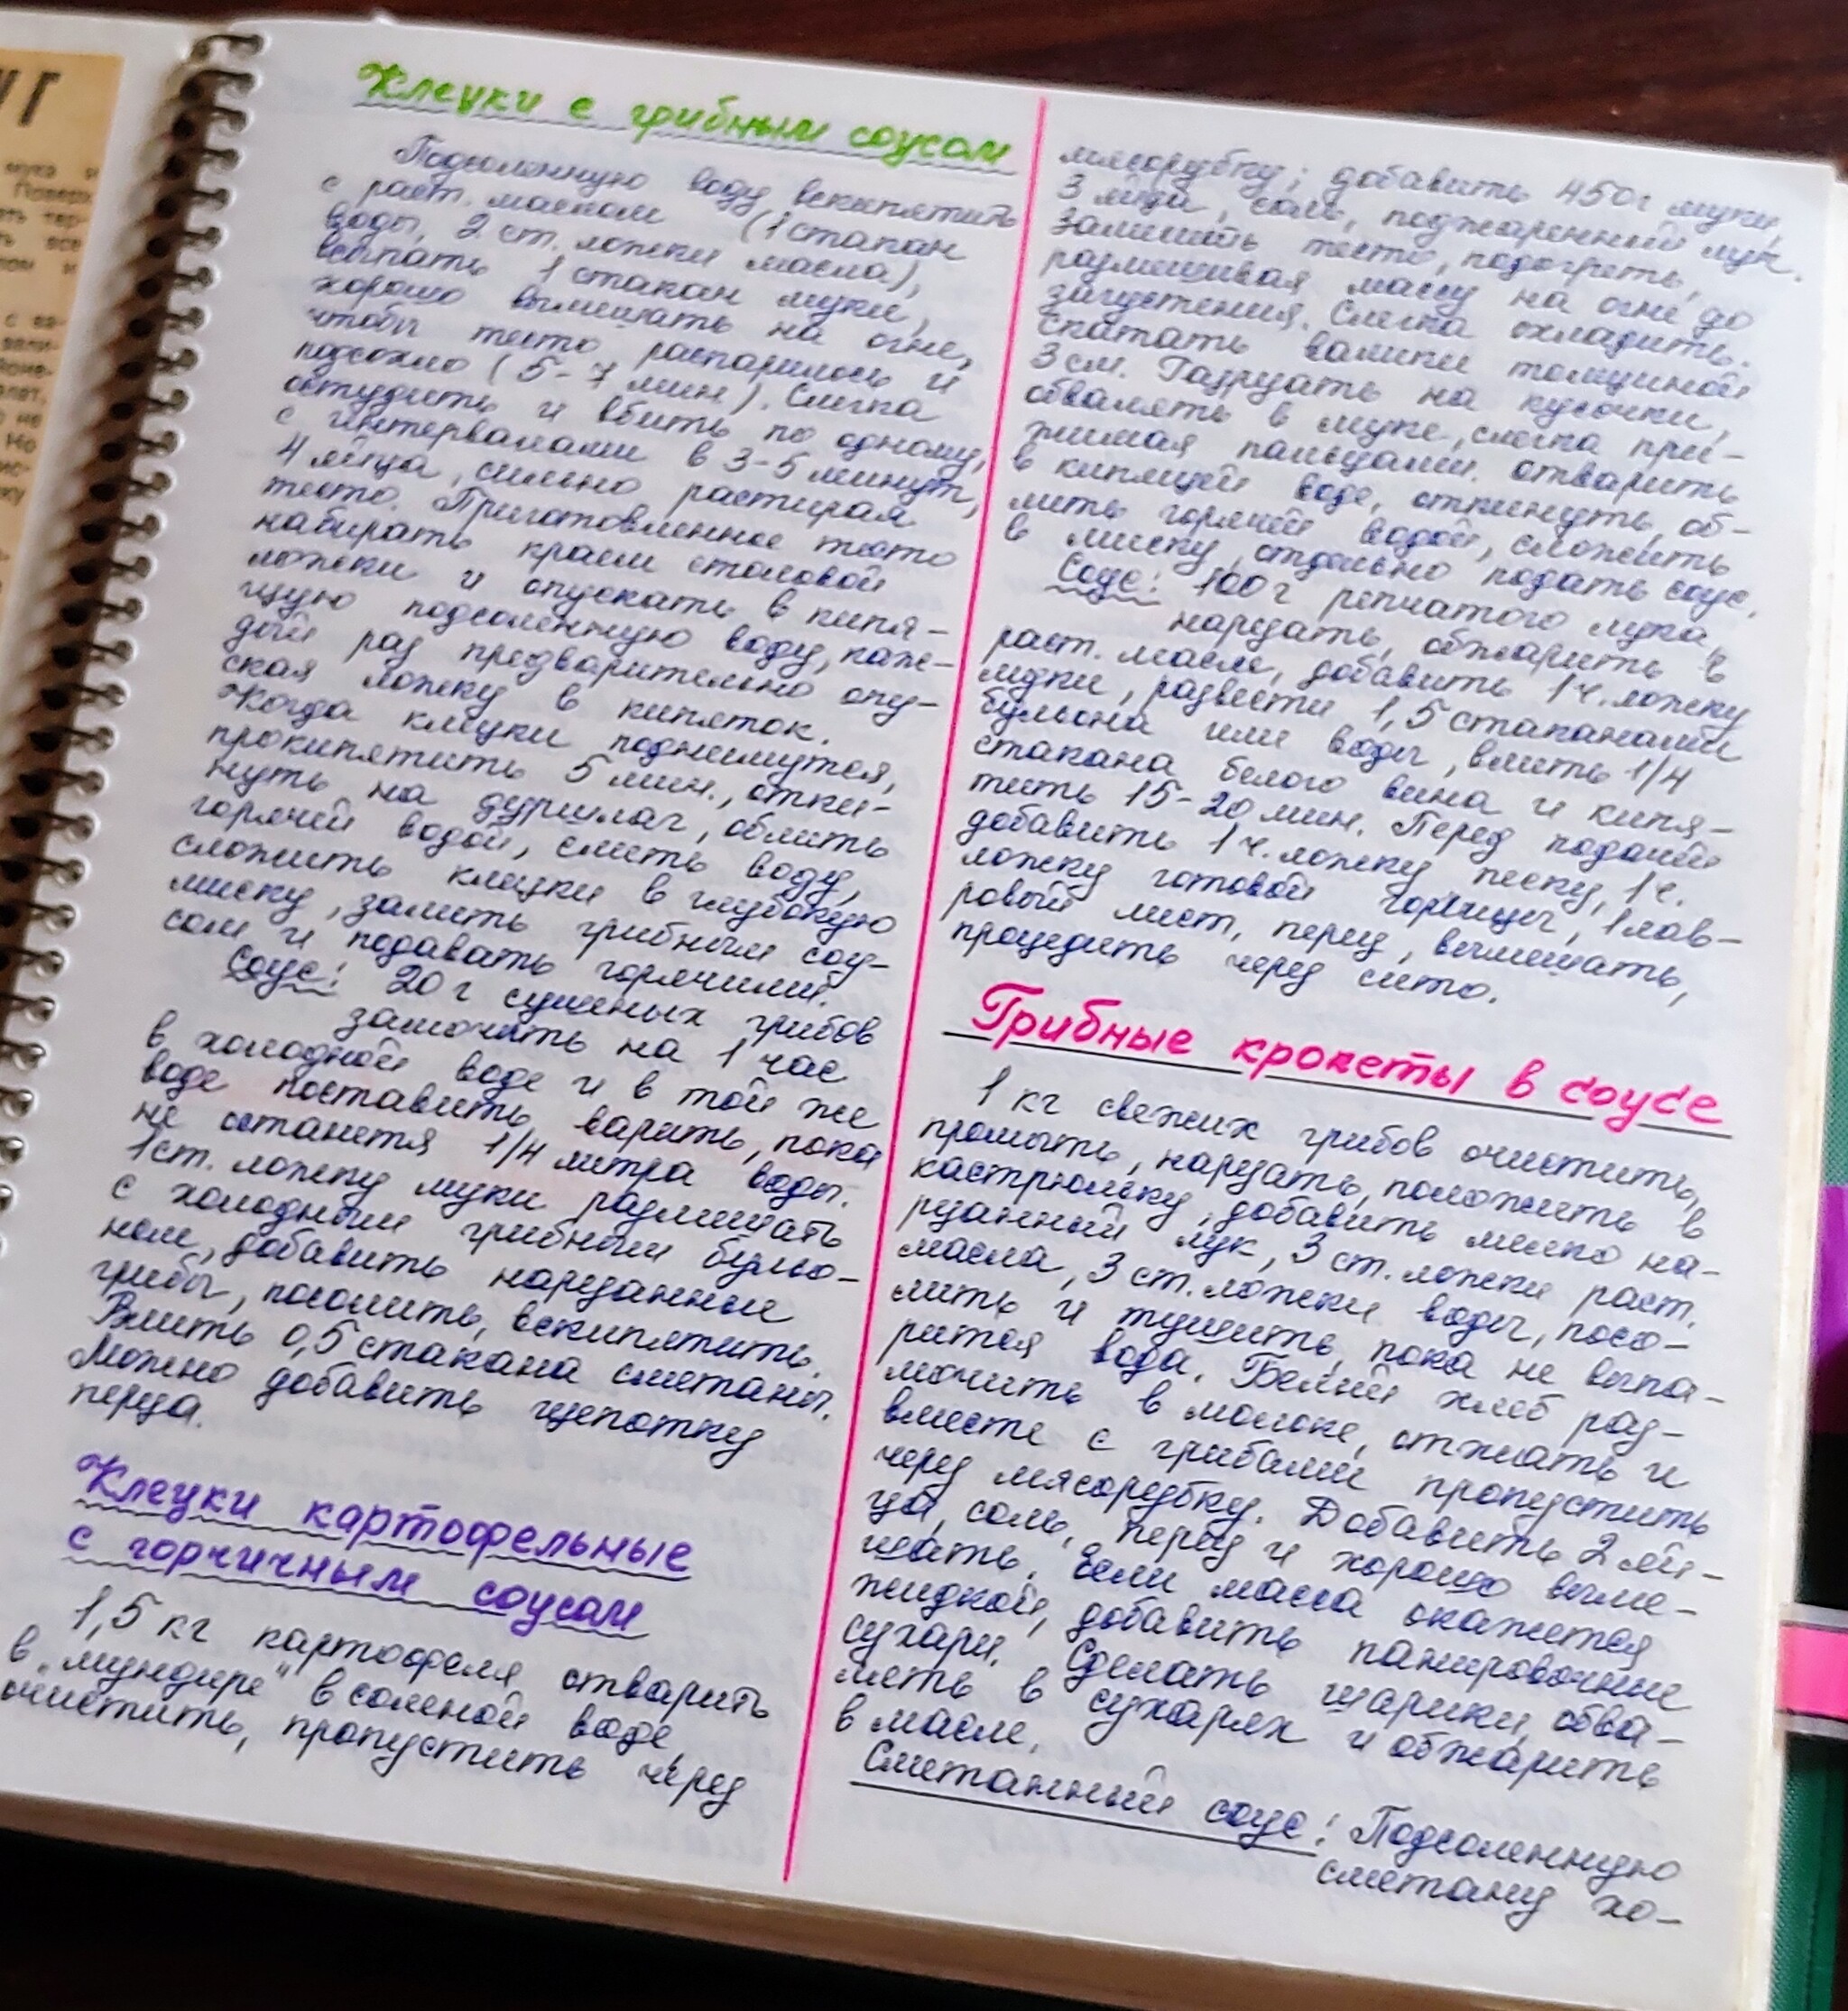 УГ
мука и
Поверх
вто не
Но
Клецки с грибным соусом
Подсоленную воду вскипятить
с раст. маслом (1 стакан
воды, 2 ст. ложки масла),
всыпать 1 стакан муки,
хорошо вымешать на огне,
чтобы тесто распарилось и
подсохло (5-7 мин). Слегка
остудить и вбить по одному,
с интервалами в 3-5 минут,
4 яйца, сильно растирая
тесто. Приготовленное тесто
набирать краем столовой
ложки и опускать в кипя-
щую подсоленную воду, каж-
дый раз предварительно опу-
ская ложку в кипяток.
Когда клецки поднимутся,
прокипятить 5 мин., отки-
нуть на друшлаг, облить
горячей водой, слить воду,
сложить клецки в глубокую
миску, залить грибным соу-
сом и подавать горячими.
Соус: 20 г сушеных грибов
замочить на 1 час
в холодной воде и в той же
воде поставить варить, пока
не останется 1/4 литра воды.
1 ст. ложку муки размешать
с холодным грибным бульо-
ном, добавить нарезанные
грибы, посолить, вскипятить.
Влить 0,5 стакана сметаны.
Можно добавить щепотку
перца.
Клецки картофельные
с горчичным соусом
1,5 кг картофеля отварить
в „мундире“ в соленой воде,
очистить, пропустить через
мясорубку; добавить 450 г муки,
3 яйца, соль, поджаренный лук.
Замешать тесто, подогреть,
размешивая массу на огне до
загустения. Слегка охладить.
Скатать валики толщиной
3 см. Разрезать на кусочки,
обвалять в муке, слегка при-
жимая пальцами. отварить
в кипящей воде, откинуть, об-
лить горячей водой, сложить
в миску, отдельно подать соус.
Соус: 100 г репчатого лука,
нарезать, обжарить в
раст. масле, добавить 1 ч. ложку
муки, развести 1,5 стаканами
бульона или воды, влить 1/4
стакана белого вина и кипя-
тить 15-20 мин. Перед подачей
добавить 1 ч. ложку песку, 1 ч.
ложку готовой горчицы, 1 лав-
ровый лист, перец, вымешать,
процедить через сито.
Грибные крокеты в соусе
1 кг свежих грибов очистить,
промыть, нарезать, положить в
кастрюльку, добавить мелко на-
резанный лук, 3 ст. ложки раст.
масла, 3 ст. ложки воды, посо-
лить и тушить, пока не выпа-
рится вода. Белый хлеб раз-
мочить в молоке, отжать и
вместе с грибами пропустить
через мясорубку. Добавить 2 яй-
ца, соль, перец и хорошо выме-
шать. Если масса окажется
жидкой, добавить панировочные
сухари. Сделать шарики, обва-
лять в сухарях и обжарить
в масле.
Сметанный соус: Подсоленную
сметану хо-